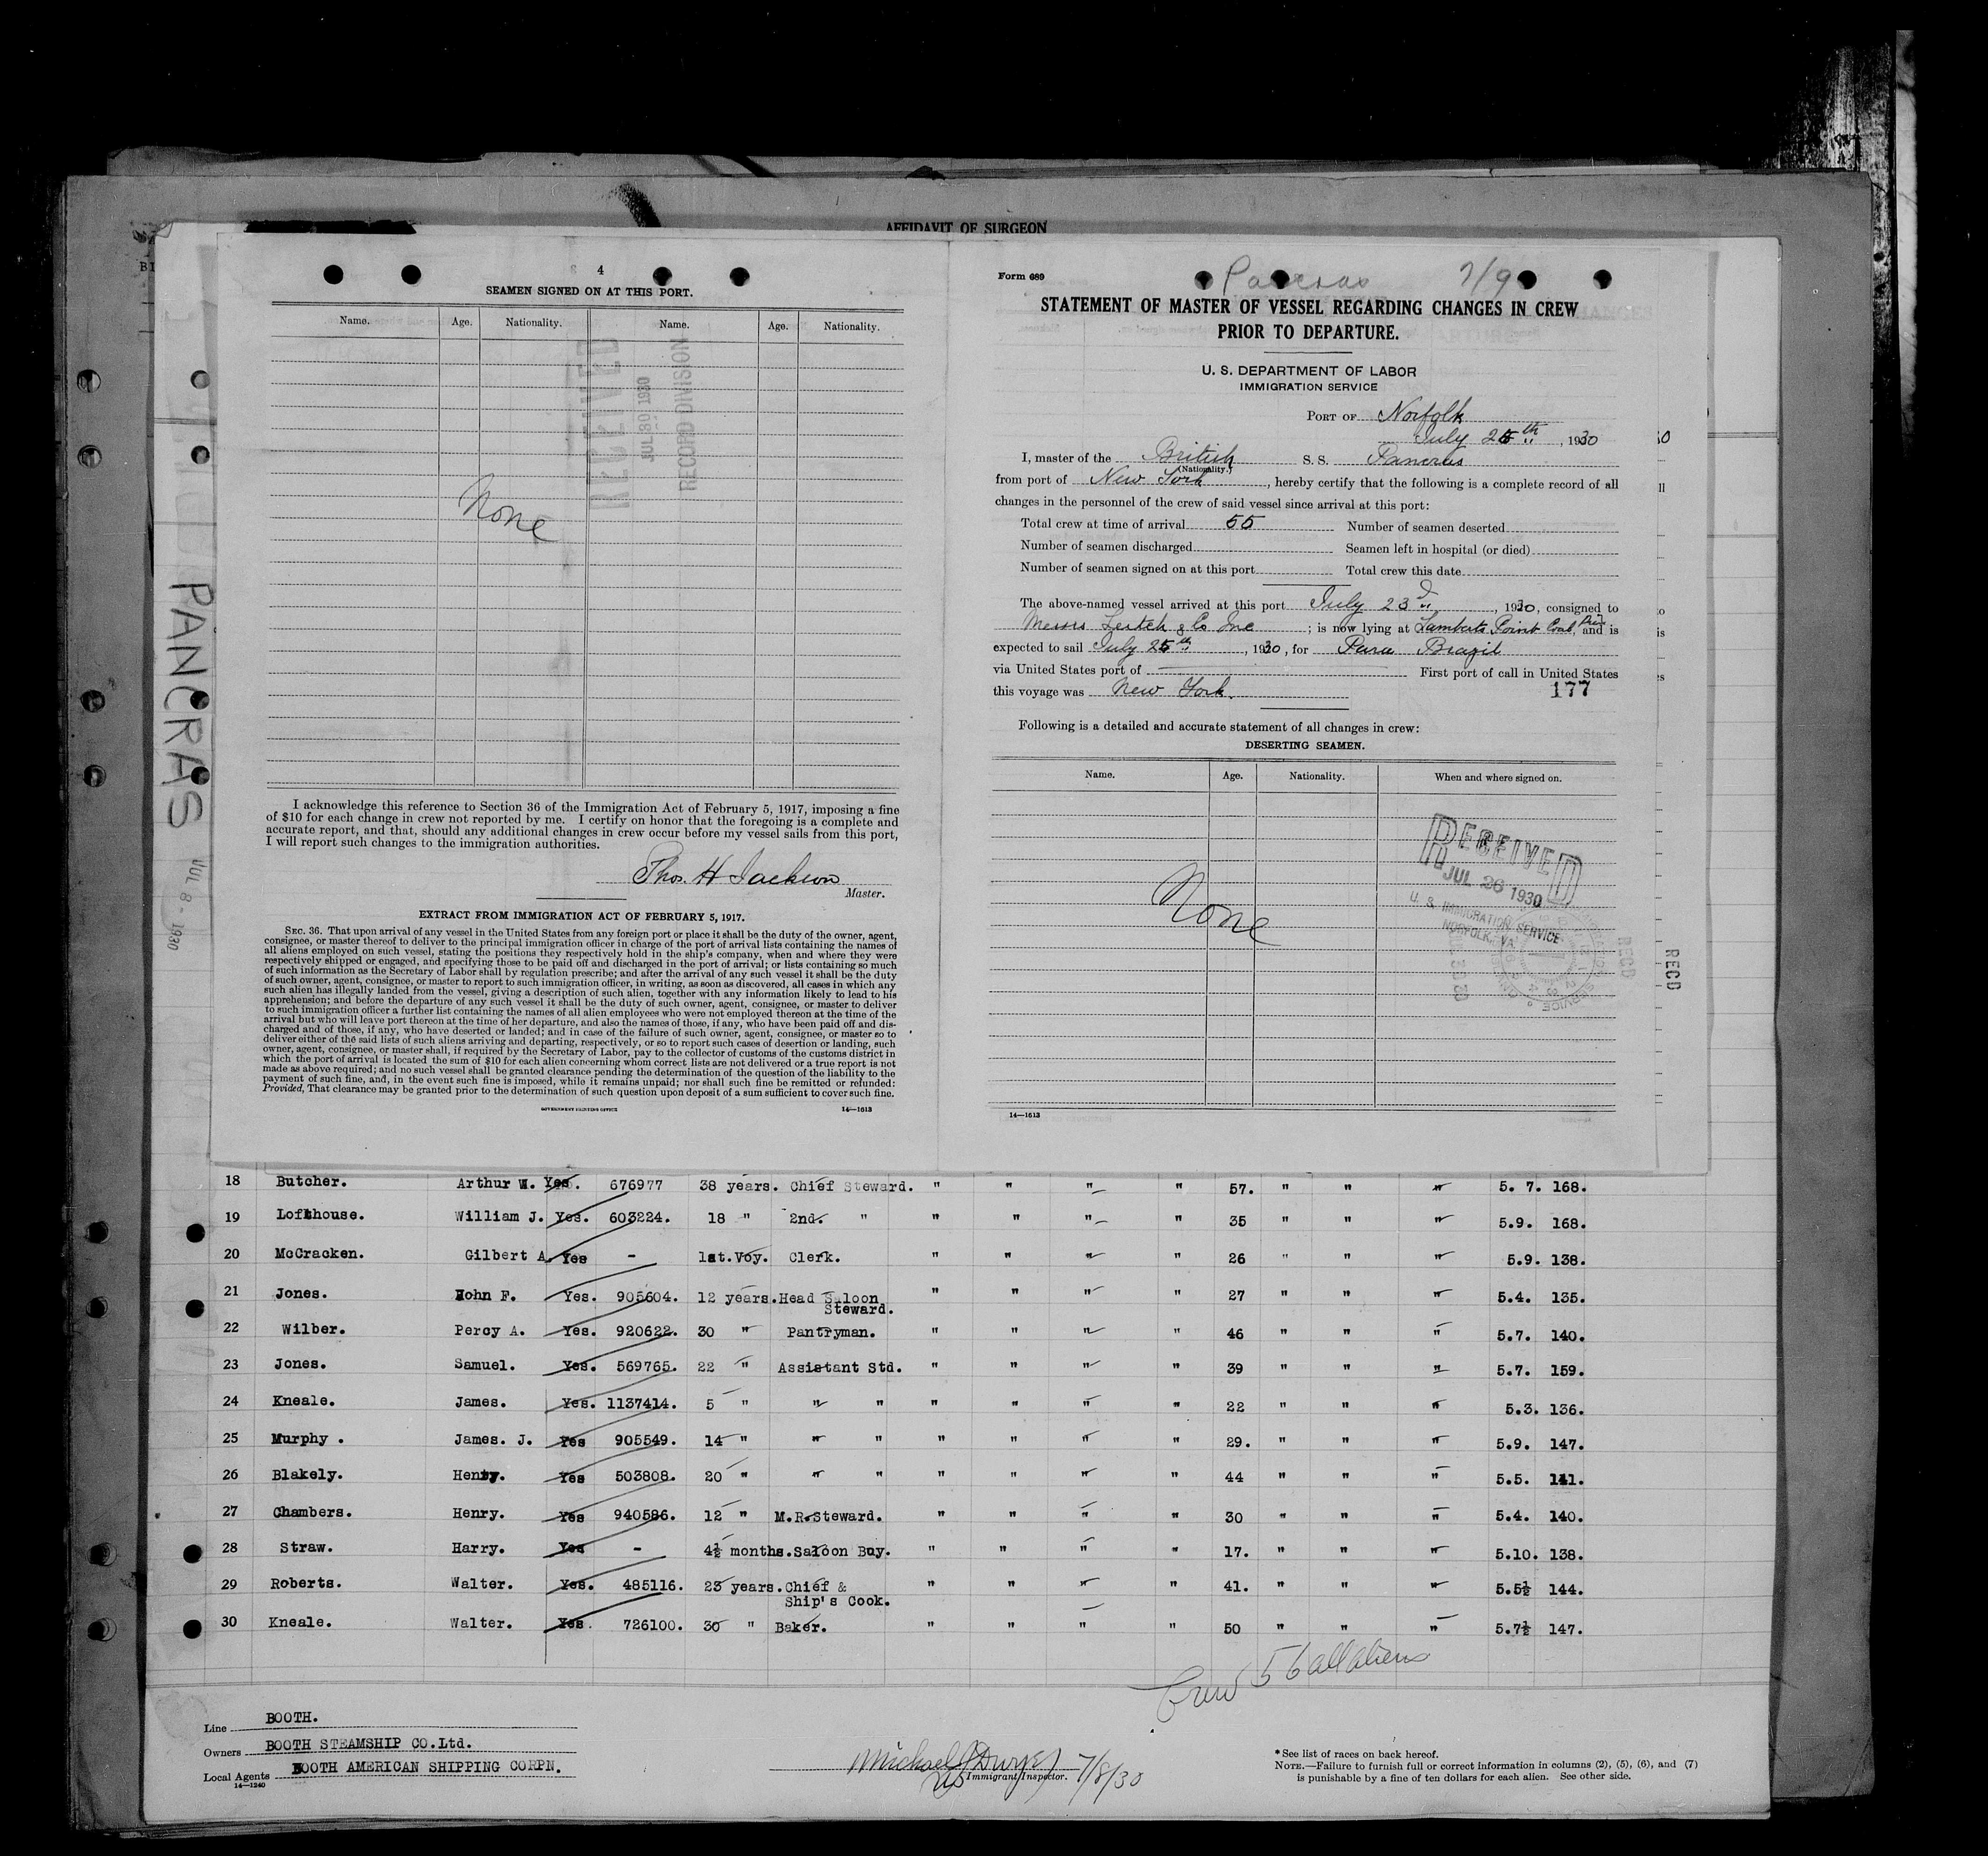 AFFIDAVIT OF SURGEON
PANCRAS
JUL 8 - 1930
4
SEAMEN SIGNED ON AT THIS PORT.
Name. Age. Nationality. Name. Age. Nationality.
RECEIVED
JUL 30 1930
RECORD DIVISION
None
I acknowledge this reference to Section 36 of the Immigration Act of February 5, 1917, imposing a fine
of $10 for each change in crew not reported by me. I certify on honor that the foregoing is a complete and
accurate report, and that, should any additional changes in crew occur before my vessel sails from this port,
I will report such changes to the immigration authorities.
Thos. H Jackson
Master.
EXTRACT FROM IMMIGRATION ACT OF FEBRUARY 5, 1917.
SEC. 36. That upon arrival of any vessel in the United States from any foreign port or place it shall be the duty of the owner, agent,
consignee, or master thereof to deliver to the principal immigration officer in charge of the port of arrival lists containing the names of
all aliens employed on such vessel, stating the positions they respectively hold in the ship's company, when and where they were
respectively shipped or engaged, and specifying those to be paid off and discharged in the port of arrival; or lists containing so much
of such information as the Secretary of Labor shall by regulation prescribe; and after the arrival of any such vessel it shall be the duty
of such owner, agent, consignee, or master to report to such immigration officer, in writing, as soon as discovered, all cases in which any
such alien has illegally landed from the vessel, giving a description of such alien, together with any information likely to lead to his
apprehension; and before the departure of any such vessel it shall be the duty of such owner, agent, consignee, or master to deliver
to such immigration officer a further list containing the names of all alien employees who were not employed thereon at the time of the
arrival but who will leave port thereon at the time of her departure, and also the names of those, if any, who have been paid off and dis-
charged and of those, if any, who have deserted or landed; and in case of the failure of such owner, agent, consignee, or master so to
deliver either of the said lists of such aliens arriving and departing, respectively, or so to report such cases of desertion or landing, such
owner, agent, consignee, or master shall, if required by the Secretary of Labor, pay to the collector of customs of the customs district in
which the port of arrival is located the sum of $10 for each alien concerning whom correct lists are not delivered or a true report is not
made as above required; and no such vessel shall be granted clearance pending the determination of the question of the liability to the
payment of such fine, and, in the event such fine is imposed, while it remains unpaid; nor shall such fine be remitted or refunded:
Provided, That clearance may be granted prior to the determination of such question upon deposit of a sum sufficient to cover such fine.
GOVERNMENT PRINTING OFFICE 14—1613
Form 689 Pancras 7/9
STATEMENT OF MASTER OF VESSEL REGARDING CHANGES IN CREW
PRIOR TO DEPARTURE.
U. S. DEPARTMENT OF LABOR
IMMIGRATION SERVICE
PORT OF Norfolk
July 25th, 1930
I, master of the British S. S. Pancras
(Nationality.)
from port of New York, hereby certify that the following is a complete record of all
changes in the personnel of the crew of said vessel since arrival at this port:
Total crew at time of arrival 55 Number of seamen deserted
Number of seamen discharged Seamen left in hospital (or died)
Number of seamen signed on at this port Total crew this date
The above-named vessel arrived at this port July 23d, 1930, consigned to
Messrs Leitch & Co Inc; is now lying at Lamberts Point Coal Pier, and is
expected to sail July 25th, 1930, for Para Brazil
via United States port of First port of call in United States
this voyage was New York. 177
Following is a detailed and accurate statement of all changes in crew:
DESERTING SEAMEN.
Name. Age. Nationality. When and where signed on.
None
RECEIVED
JUL 26 1930
U. S. IMMIGRATION SERVICE
NORFOLK, VA.
RECD
RECD
14—1613
18 Butcher. Arthur W. Yes. 676977 38 years. Chief Steward. " " " " 57. " " " 5. 7. 168.
19 Lofthouse. William J. Yes. 603224. 18 " 2nd. " " " " " 35 " " " 5.9. 168.
20 McCracken. Gilbert A. Yes - 1st.Voy. Clerk. " " " " 26 " " " 5.9. 138.
21 Jones. John F. Yes. 905604. 12 years. Head Saloon Steward. " " " " 27 " " " 5.4. 135.
22 Wilber. Percy A. Yes. 920622. 30 " Pantryman. " " " " 46 " " " 5.7. 140.
23 Jones. Samuel. Yes. 569765. 22 " Assistant Std. " " " " 39 " " " 5.7. 159.
24 Kneale. James. Yes. 1137414. 5 " " " " " " " 22 " " " 5.3. 136.
25 Murphy . James. J. Yes 905549. 14 " " " " " " " 29. " " " 5.9. 147.
26 Blakely. Henry. Yes 503808. 20 " " " " " " " 44 " " " 5.5. 141.
27 Chambers. Henry. Yes 940586. 12 " M.R.Steward. " " " " 30 " " " 5.4. 140.
28 Straw. Harry. Yes - 4½ months. Saloon Boy. " " " " 17. " " " 5.10. 138.
29 Roberts. Walter. Yes. 485116. 23 years. Chief & Ship's Cook. " " " " 41. " " " 5.5½ 144.
30 Kneale. Walter. Yes. 726100. 30 " Baker. " " " " 50 " " " 5.7½ 147.
Crew 56 all aliens
Line BOOTH.
Owners BOOTH STEAMSHIP CO.Ltd.
Local Agents BOOTH AMERICAN SHIPPING CORPN.
14—1240
Michael J Dwyer 7/8/30
US Immigrant Inspector.
* See list of races on back hereof.
NOTE.—Failure to furnish full or correct information in columns (2), (5), (6), and (7)
is punishable by a fine of ten dollars for each alien. See other side.